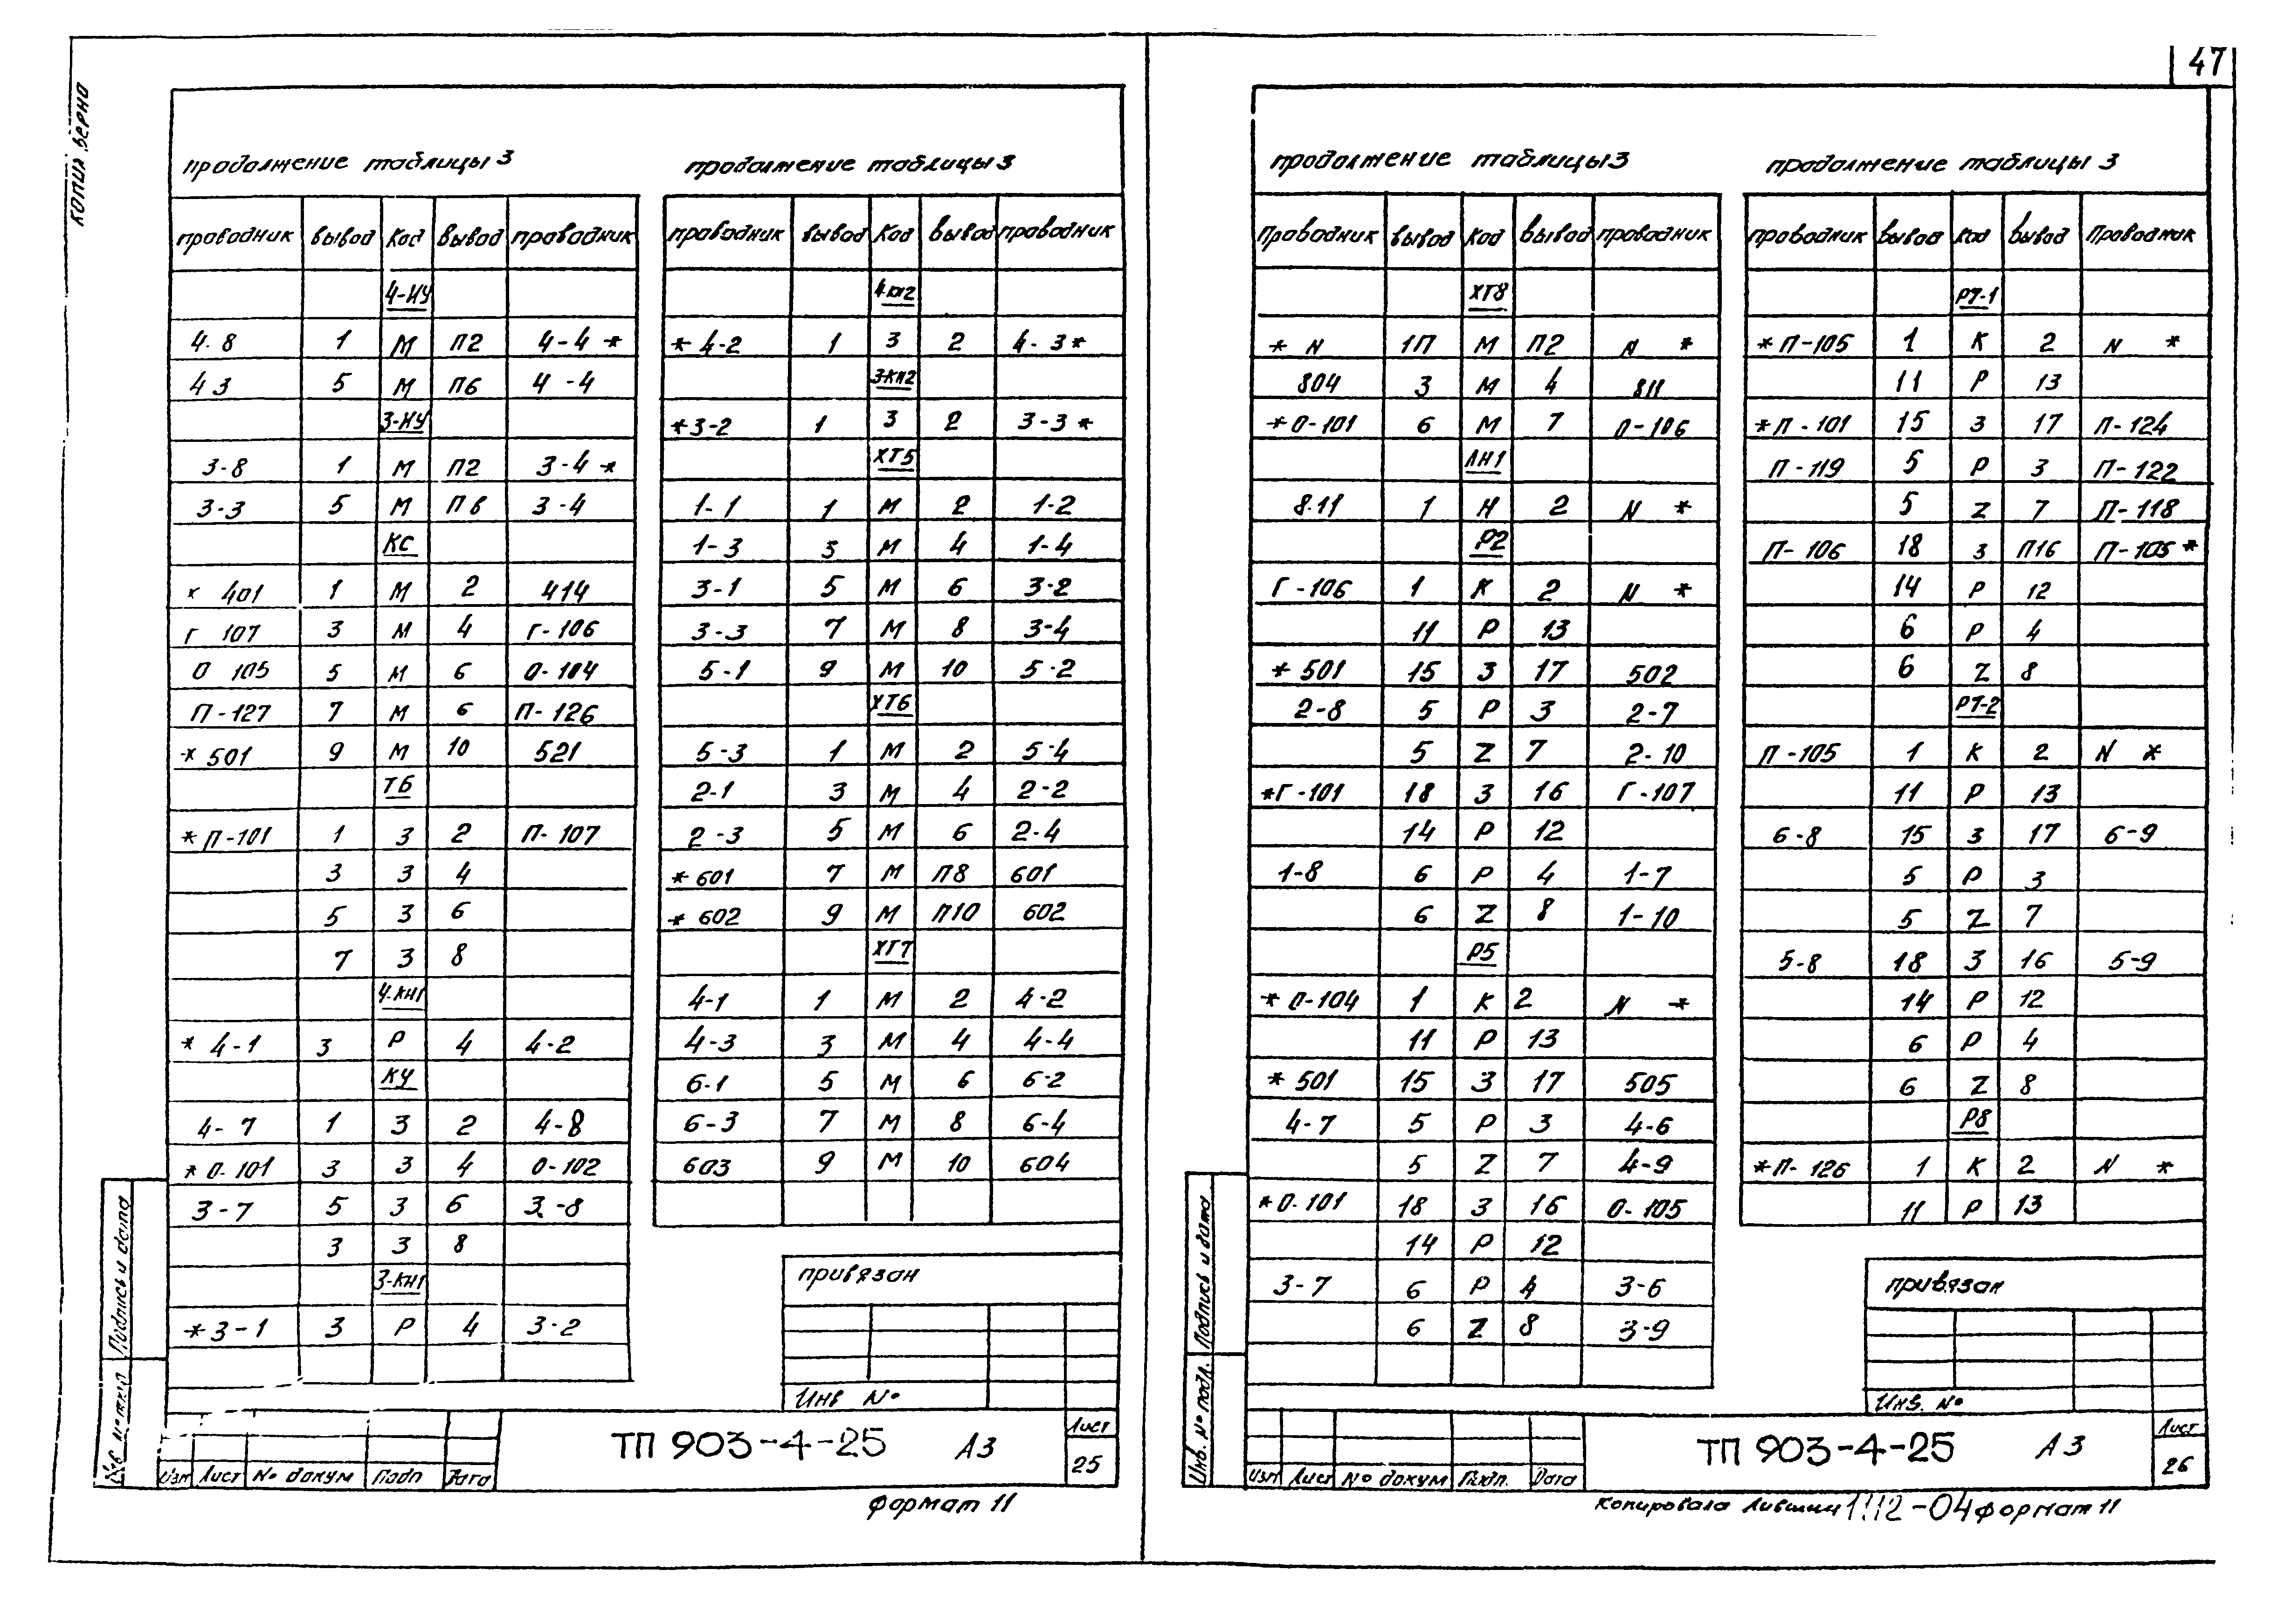 47
КОПИЯ ВЕРНО
продолжение таблицы 3
проводник вывод Код вывод проводник
4-ИУ
4-8 1 М П2 4-4 *
4 3 5 М П6 4-4
3-ИУ
3-8 1 М П2 3-4 *
3-3 5 М П6 3-4
КС
* 401 1 М 2 414
Г 107 3 М 4 Г-106
О 105 5 М 6 О-104
П-127 7 М 6 П-126
* 501 9 М 10 521
Т6
* П-101 1 З 2 П-107
3 З 4
5 З 6
7 З 8
4-КН1
* 4-1 3 Р 4 4-2
КУ
4-7 1 З 2 4-8
* О-101 3 З 4 О-102
3-7 5 З 6 3-8
3 З 8
3-КН1
* 3-1 3 Р 4 3-2
продолжение таблицы 3
проводник вывод Код вывод проводник
4-КН2
* 4-2 1 З 2 4-3 *
3-КН2
* 3-2 1 З 2 3-3 *
ХТ5
1-1 1 М 2 1-2
1-3 3 М 4 1-4
3-1 5 М 6 3-2
3-3 7 М 8 3-4
5-1 9 М 10 5-2
ХТ6
5-3 1 М 2 5-4
2-1 3 М 4 2-2
2-3 5 М 6 2-4
* 601 7 М П8 601
* 602 9 М П10 602
ХТ7
4-1 1 М 2 4-2
4-3 3 М 4 4-4
6-1 5 М 6 6-2
6-3 7 М 8 6-4
603 9 М 10 604
привязан
Инв №
Подпись и дата
Изм Лист № докум Подп Дата
ТП 903-4-25 А3
Лист
25
Формат 11
продолжение таблицы 3
Проводник вывод Код вывод проводник
ХТ8
* N 1П М П2 N *
804 3 М 4 811
* О-101 6 М 7 О-106
ЛН1
8-11 1 Н 2 N *
Р2
Г-106 1 К 2 N *
11 Р 13
* 501 15 З 17 502
2-8 5 Р 3 2-7
5 Z 7 2-10
* Г-101 18 З 16 Г-107
14 Р 12
1-8 6 Р 4 1-7
6 Z 8 1-10
Р5
* О-104 1 К 2 N *
11 Р 13
* 501 15 З 17 505
4-7 5 Р 3 4-6
5 Z 7 4-9
* О-101 18 З 16 О-105
14 Р 12
3-7 6 Р 4 3-6
6 Z 8 3-9
продолжение таблицы 3
проводник вывод Код вывод Проводник
Р7-1
* П-105 1 К 2 N *
11 Р 13
* П-101 15 З 17 П-124
П-119 5 Р 3 П-122
5 Z 7 П-118
П-106 18 З П16 П-105 *
14 Р 12
6 Р 4
6 Z 8
Р7-2
П-105 1 К 2 N *
11 Р 13
6-8 15 З 17 6-9
5 Р 3
5 Z 7
5-8 18 З 16 5-9
14 Р 12
6 Р 4
6 Z 8
Р8
* П-126 1 К 2 N *
11 Р 13
привязан
Инв. №
Инв. № подл. Подпись и дата
Изм Лист № докум Подп. Дата
ТП 903-4-25 А3
Лист
26
Копировала -04 Формат 11